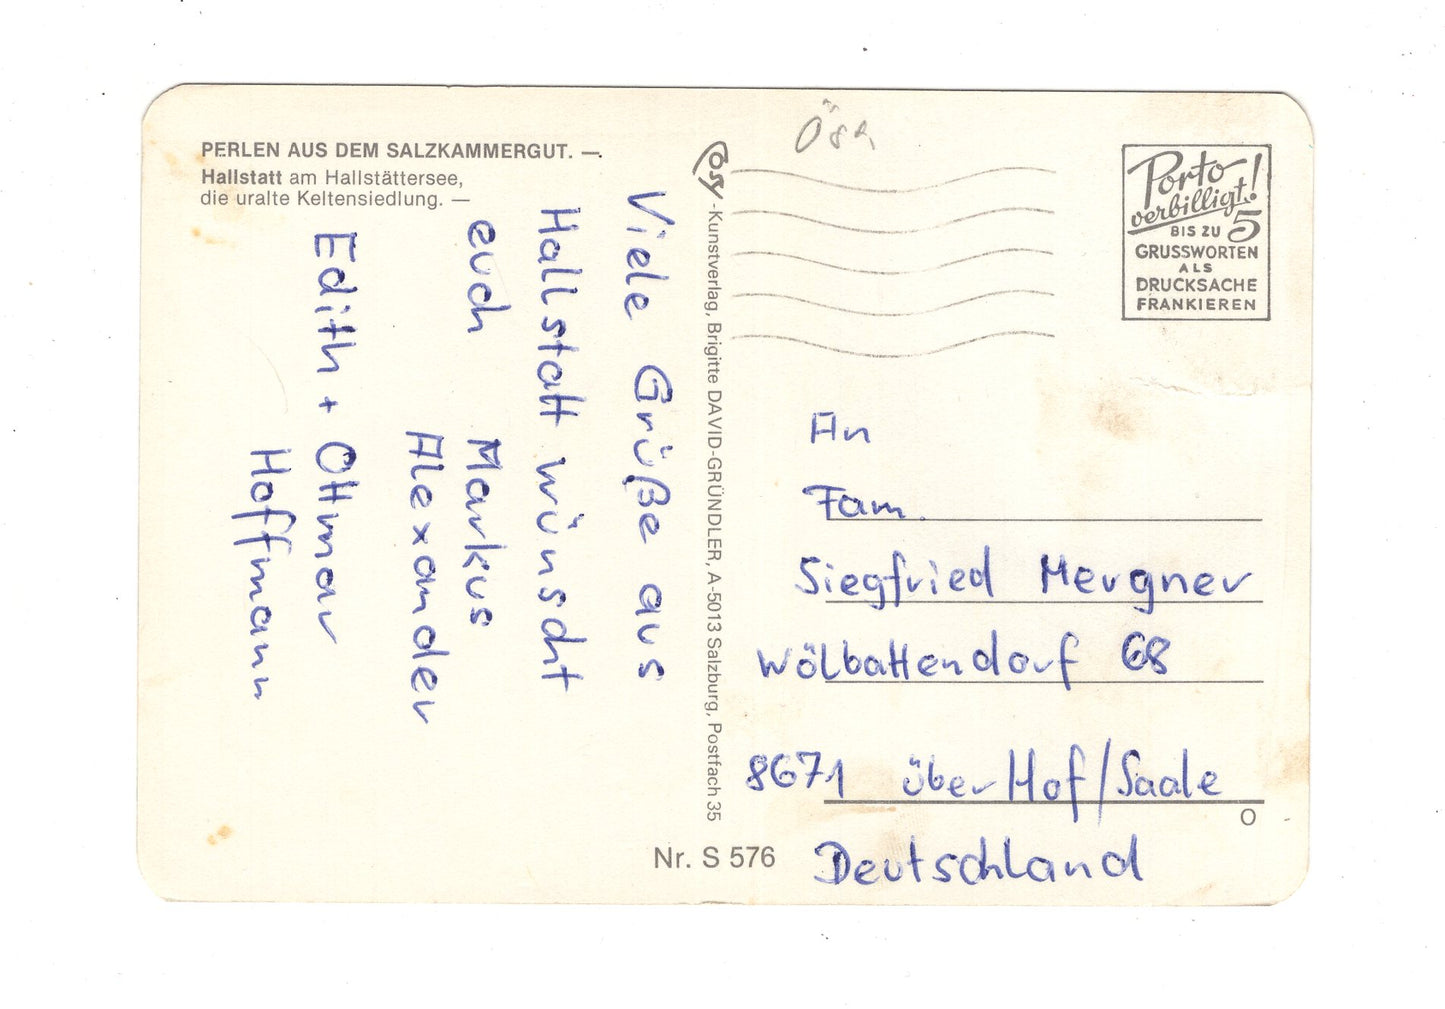 PERLEN AUS DEM SALZKAMMERGUT. —
Hallstatt am Hallstättersee,
die uralte Keltensiedlung. —
Viele Grüße aus
Hallstatt wünscht
euch Markus
Alexander
Edith + Ottmar
Hoffmann
Cosy-Kunstverlag, Brigitte DAVID-GRÜNDLER, A-5013 Salzburg, Postfach 35
Nr. S 576
Porto
verbilligt!
BIS ZU 5
GRUSSWORTEN
ALS
DRUCKSACHE
FRANKIEREN
An
Fam.
Siegfried Mergner
Wölbattendorf 68
8671 über Hof/Saale
O
Deutschland